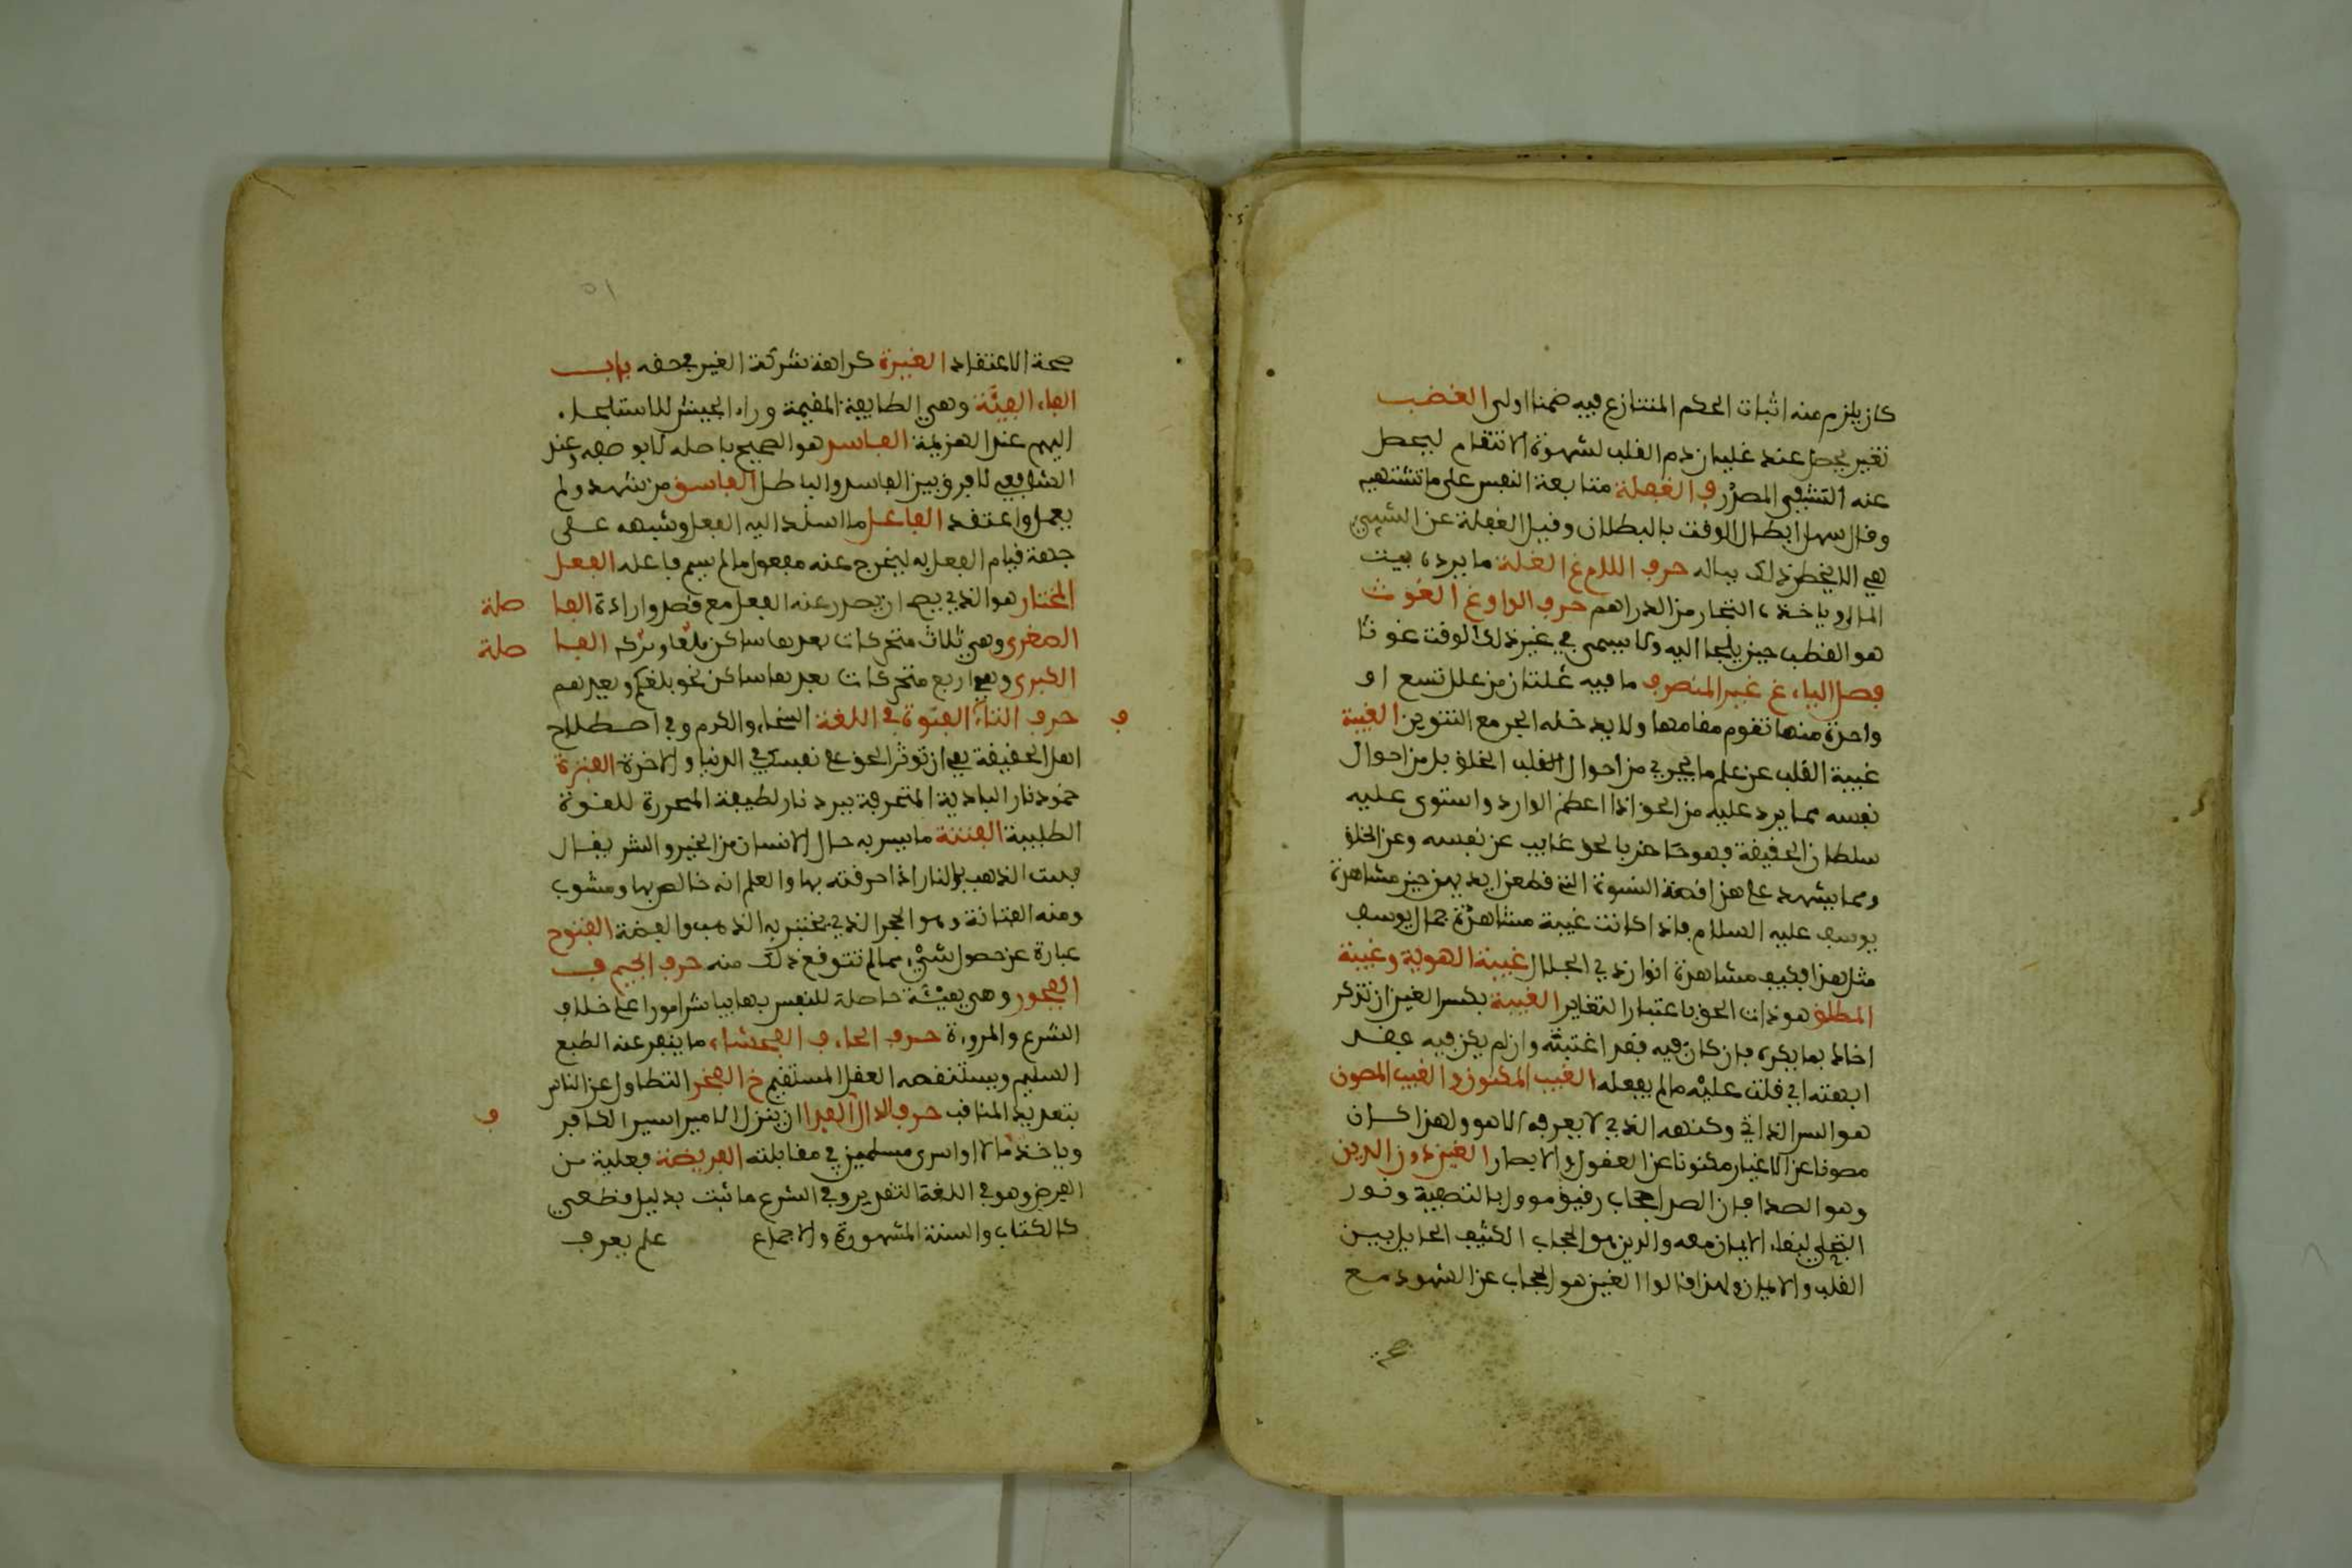 كان يلزم منه اثبات الحكم المتنازع فيه ضمنا اولى الغضب
تغير يحصل عند غليان دم القلب لشهوة الانتقام ليحصل
عنه التشفي المصدر ف الغفلة متابعة النفس على ما تشتهيه
وقال سهل ابطال الوقت بالبطلان وقيل الغفلة عن الشيء
هي الا يخطر ذلك بباله حرف اللام غ الغلة ما يرده بيت
المال وياخذه التجار من الدراهم حرف الواو غ الغوث
هو القطب حين يلجا اليه ولا يسمى في غير ذلك الوقت غوثا
فصل الياء غ غير المنصرف ما فيه علتان من علل تسع او
واحدة منها تقوم مقامها ولا يدخله الجر مع التنوين الغيبة
غيبة القلب عن علم ما يجري من احوال القلب الخلق بل من احوال
نفسه بما يرد عليه من الحق اذا اعظم الوارد واستوى عليه
سلطان الحقيقة فهو حاضر بالحق غايب عن نفسه وعن الخلق
ومما يشهد على هذا قصة النسوة التي قطعن ايديهن حين مشاهدة
يوسف عليه السلام فاذا كانت غيبة مشاهدة جمال يوسف
مثل هذا فكيف مشاهدة انوار ذي الجلال غيبة الهوية وغيبة
المطلق هو ذات الحق باعتبار التغاير الغيبة بكسر الغين ان تذكر
اخاك بما يكره فان كان فيه فقد اغتبته وان لم يكن فيه فقد
ابهته اي قلت عليه ما لم يفعله الغيب المكنون والغيب المصون
هو السر الذاتي وكنهه الذي لا يعرفه الا هو ولهذا كان
مصونا عن الاغيار مكنونا عن العقول والابصار الغين دون الرين
وهو الصدا فان الصدا حجاب رقيق موول بالتصفية ونور
التجلي لبقاء الايمان معه والرين هو الحجاب الكثيف الحايل بين
القلب والايمان ولهذا قالوا الغين هو الحجاب عن الشهود مع
صحة
٥١
صحة الاعتقاد الغيرة كراهة شركة الغير في حقه باب
الفاء الفئة وهي الطايفة المقيمة وراء الجيش للاستلجاء
اليهم عند الهزيمة الفاسد هو الصحيح باصله لا بوصفه وعند
الشافعي لا فرق بين الفاسد والباطل الفاسق من شهد ولم
يعمل واعتقد الفاعل ما اسند اليه الفعل وشبهه على
جهة قيام الفعل به ليخرج عنه مفعول ما لم يسم فاعله الفعل
المختار هو الذي يصح ان يصدر عنه الفعل مع قصد وارادة الفا صلة
الصغرى وهي ثلاث متحركات بعدها ساكن بلغا ويدكم الفا صلة
الكبرى وهي اربع متحركات بعدها ساكن نحو بلغكم ويعدهم
حرف التاء الفتوة في اللغة السخاء والكرم وفي اصطلاح ف
اهل الحقيقة هي ان توثر الحق على نفسك في الدنيا والاخرة الفترة
خمود نار البادية المتحرقة ببرد نار لطيفة المحررة للقوة
الطلبية الفتنة ما يبين به حال الانسان من الخير والشر يقال
فتنت الذهب بالنار اذا احرقته بها والعلم انه خالص بها ومشوب
ومنه الفتانة وهو الحجر الذي يختبر به الذهب والفضة الفتوح
عبارة عن حصول شيء مما لم تتوقع ذلك منه حرف الجيم ف
الفجور وهي هيئة حاصلة للنفس بها يباشر امورا على خلاف
الشرع والمروءة حرف الحاء ف الفحشاء ما ينفر عنه الطبع
السليم ويستنقصه العقل المستقيم خ الفخر التطاول عن الناس
بتعديد المناقب حرف الدال الفدا ان ينزل الامير اسير الكافر ف
وياخذ مالا او اسرى مسلمين في مقابلته الفريضة فعلية من
الفرض وهو في اللغة التقدير وفي الشرع ما ثبت بدليل قطعي
كالكتاب والسنة المشهورة والاجماع علم يعرف